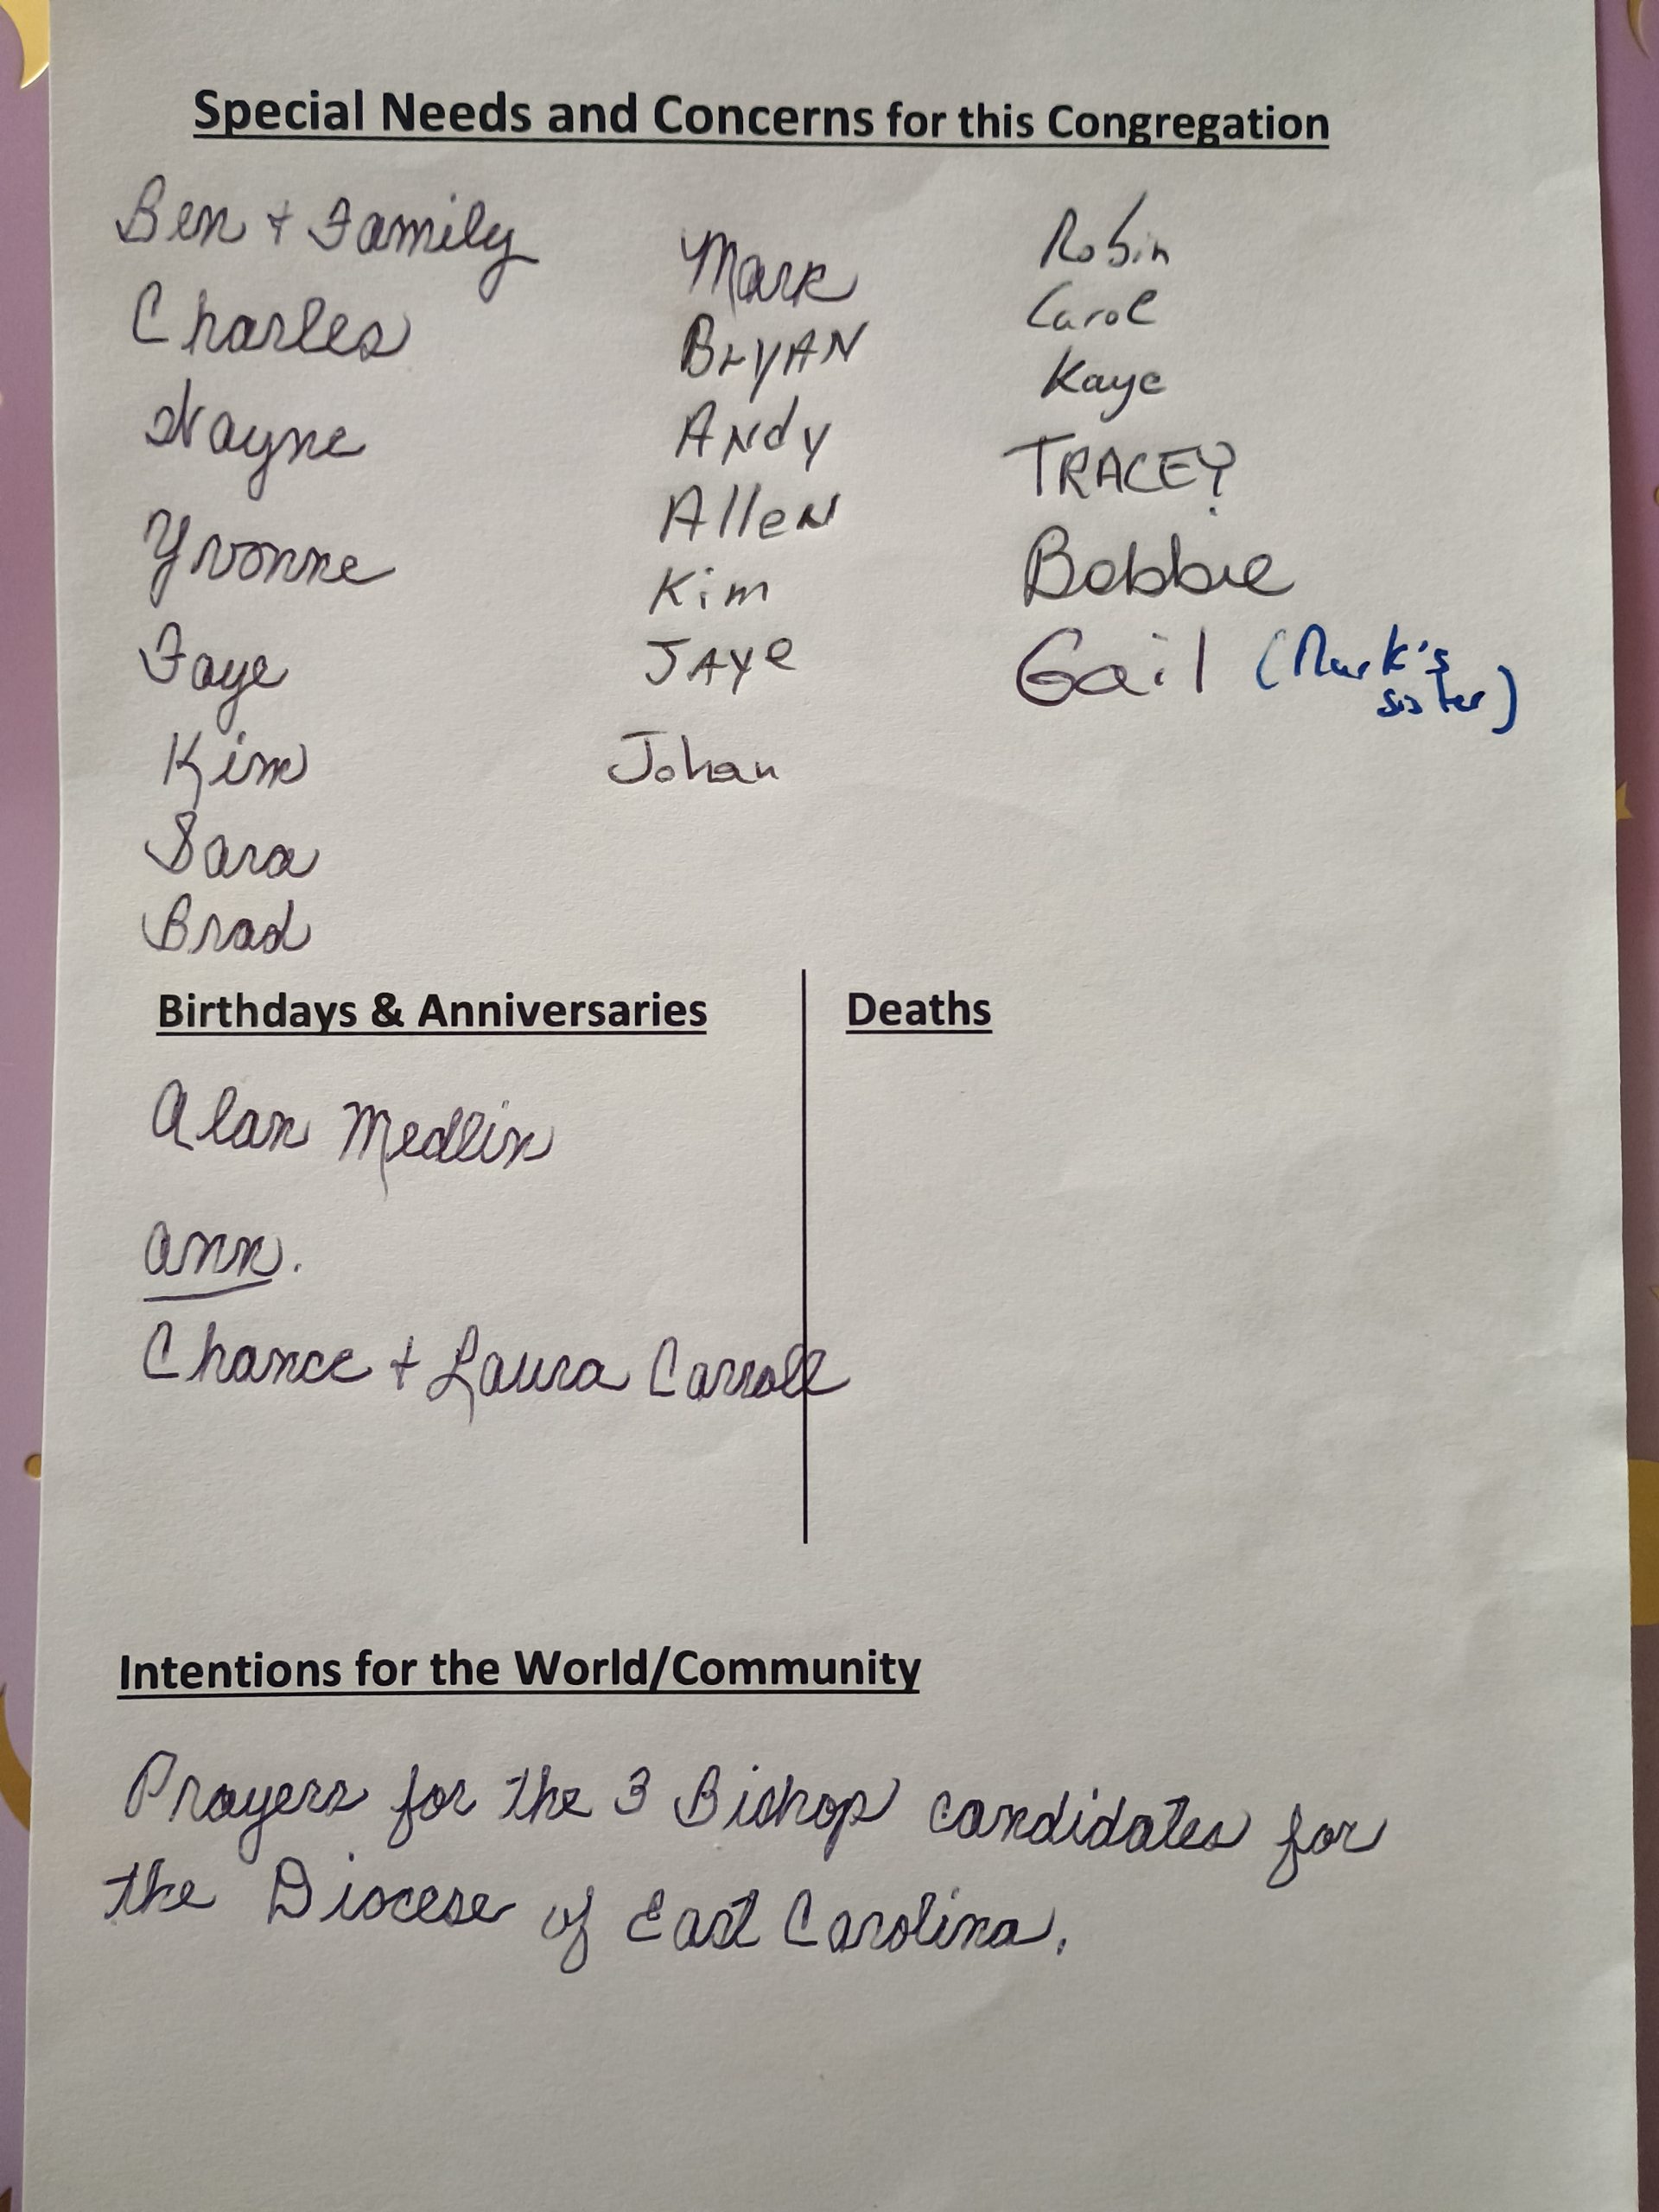 Special Needs and Concerns for this Congregation
Ben + Family
Charles
Wayne
Yvonne
Faye
Kim
Sara
Brad
Mark
BryAN
ANdy
AlleN
Kim
JAYe
Johan
Robin
Carol
Kaye
TRACEY
Bobbie
Gail (Mark's
sister)
Birthdays & Anniversaries
Alan Medlin
Ann.
Chance + Laura Carroll
Deaths
Intentions for the World/Community
Prayers for the 3 Bishop candidates for
the Diocese of East Carolina.